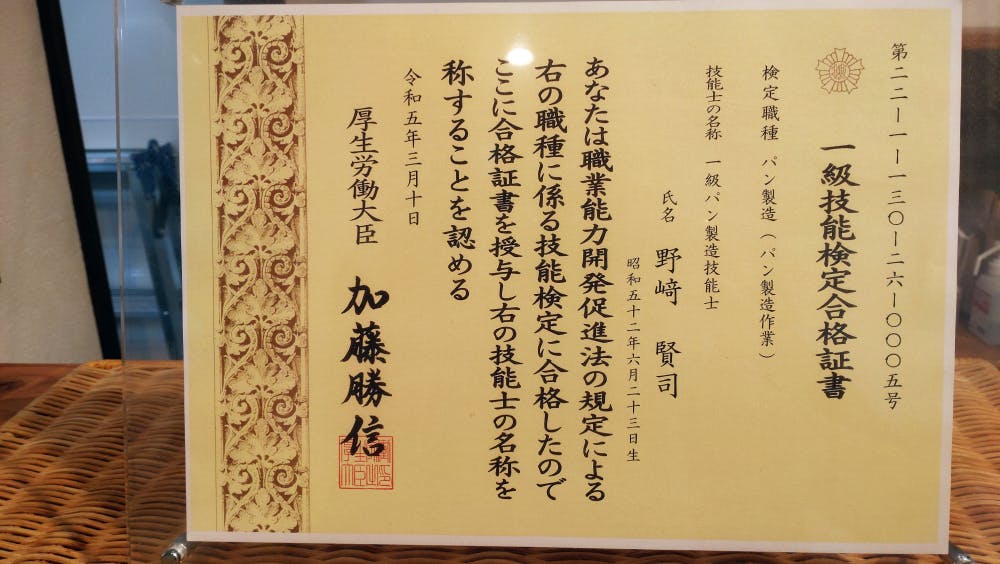 第二二―一―一三〇―二六―〇〇〇五号
一級技能検定合格証書
検定職種 パン製造(パン製造作業)
技能士の名称 一級パン製造技能士
氏名 野﨑 賢司
昭和五十二年六月二十三日生
あなたは職業能力開発促進法の規定による
右の職種に係る技能検定に合格したので
ここに合格証書を授与し右の技能士の名称を
称することを認める
令和五年三月十日
厚生労働大臣 加藤勝信